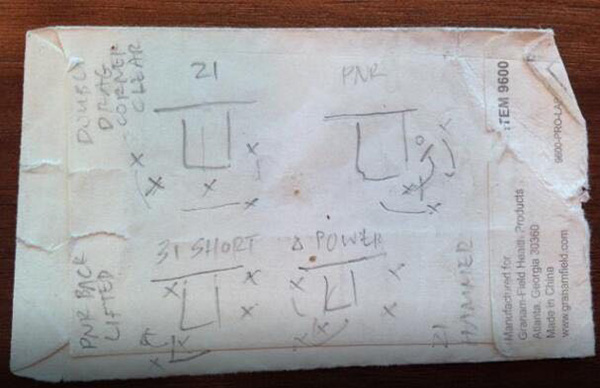 DOUBLE
DRAG
CORNER
CLEAR
21
PNR
PNR BACK
LIFTED
31 SHORT
Δ POWER
21
HAMMER
ITEM 9600
Manufactured for
Graham-Field Health Products
Atlanta, Georgia 30360
Made in China
www.grahamfield.com